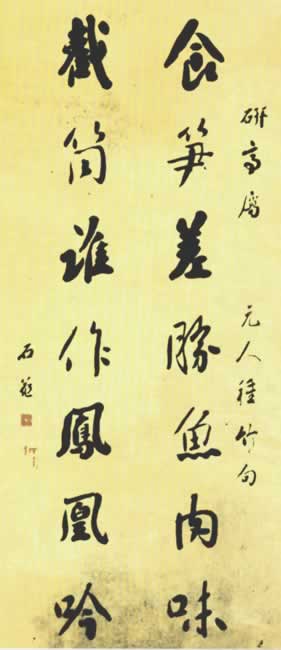 研高屬 元人種竹句
食笋差勝魚肉味
截筒誰作鳳凰吟
石菴